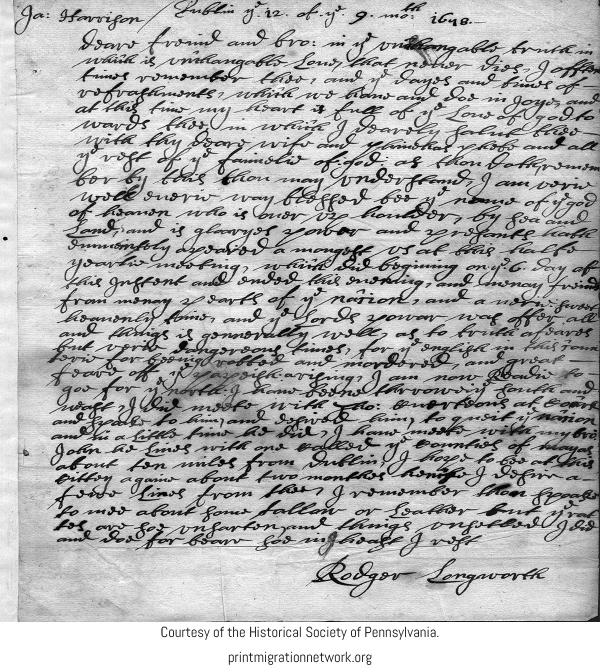 Ja: Harrison / Dublin yᵉ 12. of yᵉ 9. moᵗʰ 1648.
deare freind and bro: in yᵉ unchangable truth in
which is unchangable Love, that never dies, I often
times remember thee, and yᵉ dayes and times of
refrashments, which we have and doe in Joye, and
at this time my heart is full of yᵉ Love of god to
wards thee, in which I dearely salut thee
with thy deare wife and phinehas phebe and all
yᵉ rest of yᵉ famelie of god. as thou doth remem
ber by this thou may understand, I am verie
well everie way blessed bee yᵉ name of yᵉ god
of heaven who is over us houlder, by sea and
Land, and is gloryes power and presants hath
emmenntly apeared a mongst us at this halfe
yearlie meeting, which did begining on yᵉ 6 day of
this Instent and ended this evening, and meny freinds
from meny pearts of yᵉ nation, and a verie sweet
heavenly time, and yᵉ Lords power was over all
and things is generally well, as to truth
but verie dangereous times, for yᵉ english in this
feric for beeing robbed and murdered, and great
feare off yᵉ rising, I am now Readie to
goe for yᵉ north, I have beene througwiᵗ south and
west, I did meete with tho: at
and spoake to him, and desired him, to queit yᵉ nation
and in a little time he did, I have meete with my bro:
John he Lives with one Called yᵉ Counties of
about ten miles from dublin, I hope to bee at this
cittey agame about two monthes hence I desire a
fewe Lines from thee, I remember thou spoake
to mee about some tallow or Leather but yᵉ ra
tes are soe unsarten, and things unsetled I did
and doe for beare soe in heast I rest
Rodger Longworth
Courtesy of the Historical Society of Pennsylvania.
printmigrationnetwork.org